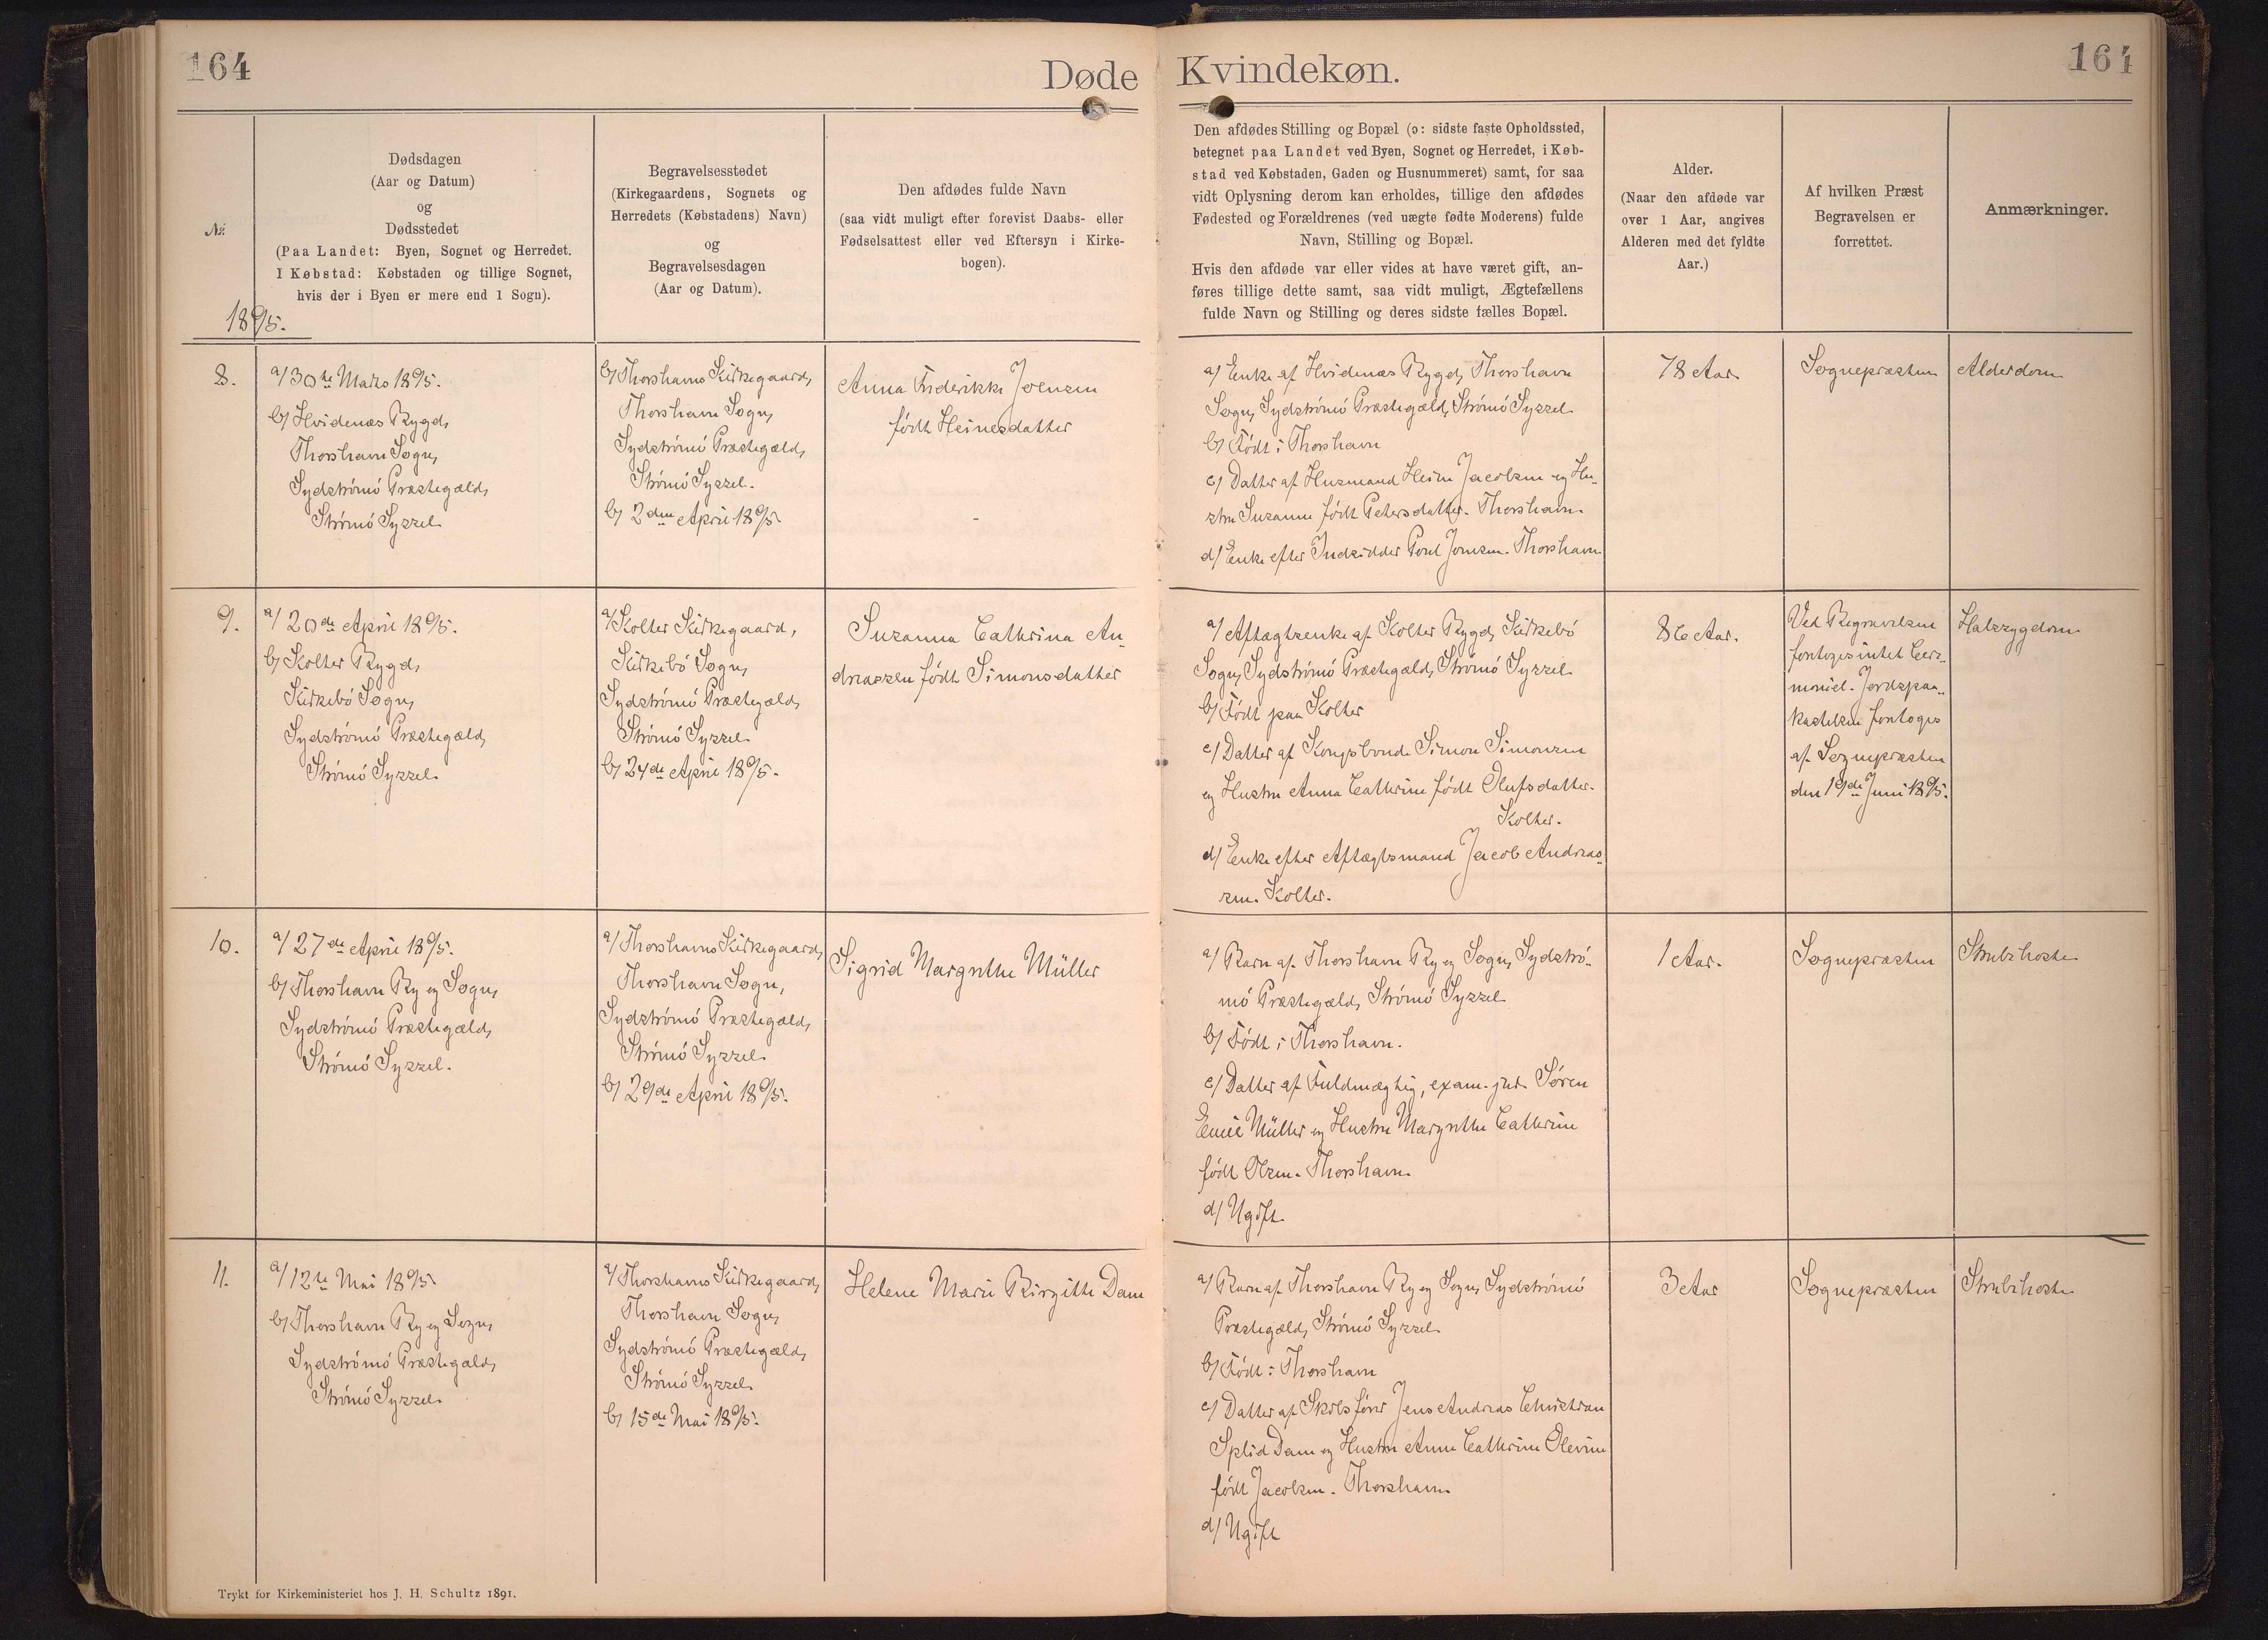 164
Døde
Kvindekøn.
164
№
Dødsdagen
(Aar og Datum)
og
Dødsstedet
(Paa Landet: Byen, Sognet og Herredet.
I Købstad: Købstaden og tillige Sognet,
hvis der i Byen er mere end 1 Sogn).
Begravelsesstedet
(Kirkegaardens, Sognets og
Herredets (Købstadens) Navn)
og
Begravelsesdagen
(Aar og Datum).
Den afdødes fulde Navn
(saa vidt muligt efter forevist Daabs- eller
Fødselsattest eller ved Eftersyn i Kirke-
bogen).
Den afdødes Stilling og Bopæl (ɔ: sidste faste Opholdssted,
betegnet paa Landet ved Byen, Sognet og Herredet, i Køb-
stad ved Købstaden, Gaden og Husnummeret) samt, for saa
vidt Oplysning derom kan erholdes, tillige den afdødes
Fødested og Forældrenes (ved uægte fødte Moderens) fulde
Navn, Stilling og Bopæl.
Hvis den afdøde var eller vides at have været gift, an-
føres tillige dette samt, saa vidt muligt, Ægtefællens
fulde Navn og Stilling og deres sidste fælles Bopæl.
Alder.
(Naar den afdøde var
over 1 Aar, angives
Alderen med det fyldte
Aar.)
Af hvilken Præst
Begravelsen er
forrettet.
Anmærkninger.
1895.
8.
a/ 30te Marts 1895.
b/ Hvidenæs Bygd,
Thorshavn Sogn,
Sydstrømø Præstegæld,
Strømø Syssel
b/ Thorshavns Kirkegaard,
Thorshavn Sogn,
Sydstrømø Præstegæld,
Strømø Syssel.
b/ 2den April 1895
Anna Frederikke Joensen
født Heinesdatter
a/ Enke af Hvidenæs Bygd, Thorshavn
Sogn, Sydstrømø Præstegæld, Strømø Syssel
b/ Født i Thorshavn
c/ Datter af Husmand Heine Jacobsen og Hu-
stru Susanne født Petersdatter. Thorshavn.
d/ Enke efter Indsidder Poul Joensen. Thorshavn
78 Aar
Sognepræsten
Alderdom
9.
a/ 20de April 1895.
b/ Kolter Bygd,
Kirkebø Sogn,
Sydstrømø Præstegæld,
Strømø Syssel
a/ Kolter Kirkegaard,
Kirkebø Sogn,
Sydstrømø Præstegæld,
Strømø Syssel
b/ 24de April 1895.
Susanna Cathrina An-
dreassen født Simonsdatter
a/ Aftægtsenke af Kolter Bygd, Kirkebø
Sogn, Sydstrømø Præstegæld, Strømø Syssel
b/ Født paa Kolter
c/ Datter af Kongsbonde Simon Simonsen
og Hustru Anna Cathrine født Olufsdatter.
Kolter.
d/ Enke efter Aftægtsmand Jacob Andreas-
sen. Kolter.
86 Aar.
Ved Begravelsen
foretoges intet Cere-
moniel. Jordspaa-
kastelsen foretoges
af Sognepræsten
den 19de Juni 1895.
Halssygdom
10.
a/ 27de April 1895.
b/ Thorshavn By og Sogn,
Sydstrømø Præstegæld,
Strømø Syssel.
a/ Thorshavns Kirkegaard,
Thorshavn Sogn,
Sydstrømø Præstegæld,
Strømø Syssel
b/ 29de April 1895.
Sigrid Margrethe Müller
a/ Barn af Thorshavn By og Sogn, Sydstrø-
mø Præstegæld, Strømø Syssel
b/ Født i Thorshavn.
c/ Datter af Fuldmægtig, exam. jur. Søren
Emil Müller og Hustru Margrethe Cathrine
født Olsen. Thorshavn
d/ Ugift
1 Aar.
Sognepræsten
Strubehoste
11.
a/ 12te Mai 1895
b/ Thorshavn By og Sogn,
Sydstrømø Præstegæld,
Strømø Syssel
a/ Thorshavns Kirkegaard,
Thorshavn Sogn,
Sydstrømø Præstegæld,
Strømø Syssel
b/ 15de Mai 1895.
Helene Marie Birgitte Dam
a/ Barn af Thorshavn By og Sogn, Sydstrømø
Præstegæld, Strømø Syssel
b/ Født i Thorshavn
c/ Datter af Skibsfører Jens Andreas Christian
Splid Dam og Hustru Anne Cathrine Olevine
født Jacobsen. Thorshavn
d/ Ugift
3 Aar
Sognepræsten
Strubehoste
Trykt for Kirkeministeriet hos J. H. Schultz 1891.